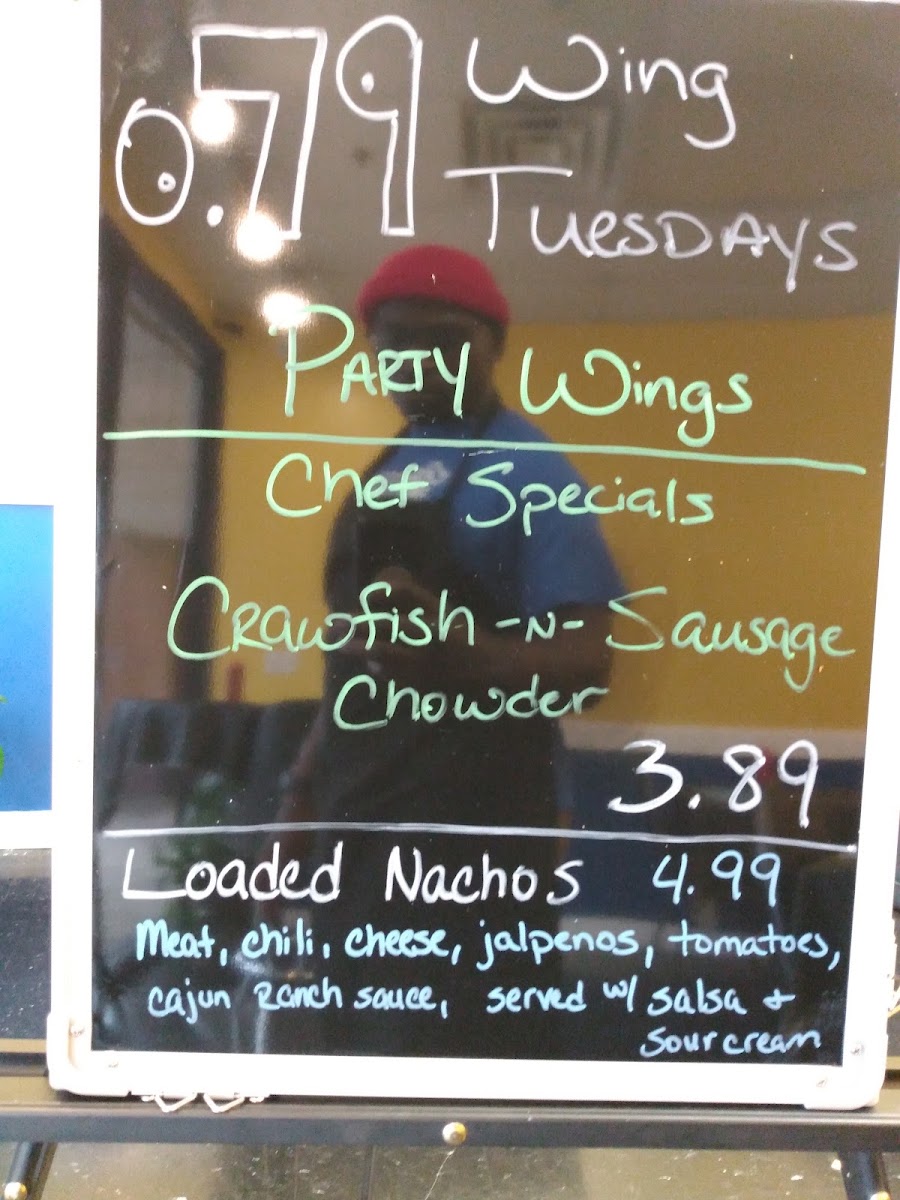 0.79 Wing
Tuesdays
Party Wings
Chef Specials
Crawfish -N- Sausage
Chowder
3.89
Loaded Nachos 4.99
Meat, chili, cheese, jalpenos, tomatoes,
cajun Ranch sauce, served w/ salsa &
sour cream